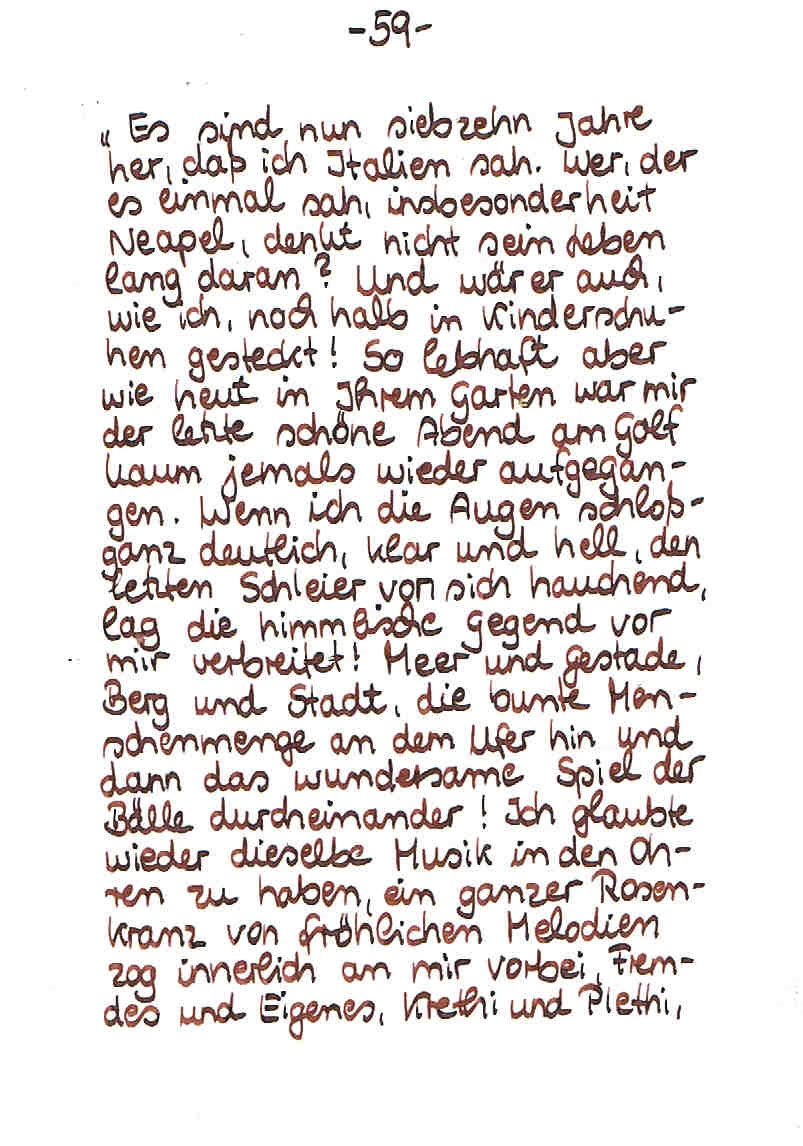 -59-
„Es sind nun siebzehn Jahre
her, daß ich Italien sah. Wer, der
es einmal sah, insbesonderheit
Neapel, denkt nicht sein Leben
lang daran? Und wär er auch,
wie ich, noch halb in Kinderschu-
hen gesteckt! So lebhaft aber
wie heut in Ihrem Garten war mir
der letzte schöne Abend am Golf
kaum jemals wieder aufgegan-
gen. Wenn ich die Augen schloß-
ganz deutlich, klar und hell, den
letzten Schleier von sich hauchend,
lag die himmlische Gegend vor
mir verbreitet! Meer und Gestade,
Berg und Stadt, die bunte Men-
schenmenge an dem Ufer hin und
dann das wundersame Spiel der
Bälle durcheinander! Ich glaubte
wieder dieselbe Musik in den Oh-
ren zu haben, ein ganzer Rosen-
kranz von fröhlichen Melodien
zog innerlich an mir vorbei, Frem-
des und Eigenes, Krethi und Plethi,